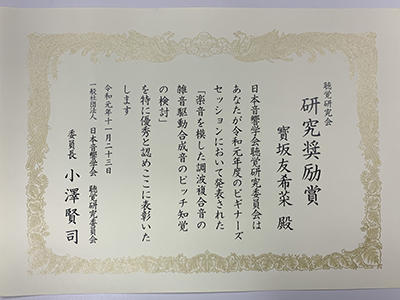 聴覚研究会
研究奨励賞
寳坂友希菜 殿
日本音響学会聴覚研究委員会は
あなたが令和元年度のビギナーズ
セッションにおいて発表された
「楽音を模した調波複合音の
雑音駆動合成音のピッチ知覚
の検討」
を特に優秀と認めここに表彰いた
します
令和元年十一月二十三日
一般社団法人 日本音響学会 聴覚研究委員会
委員長 小澤賢司